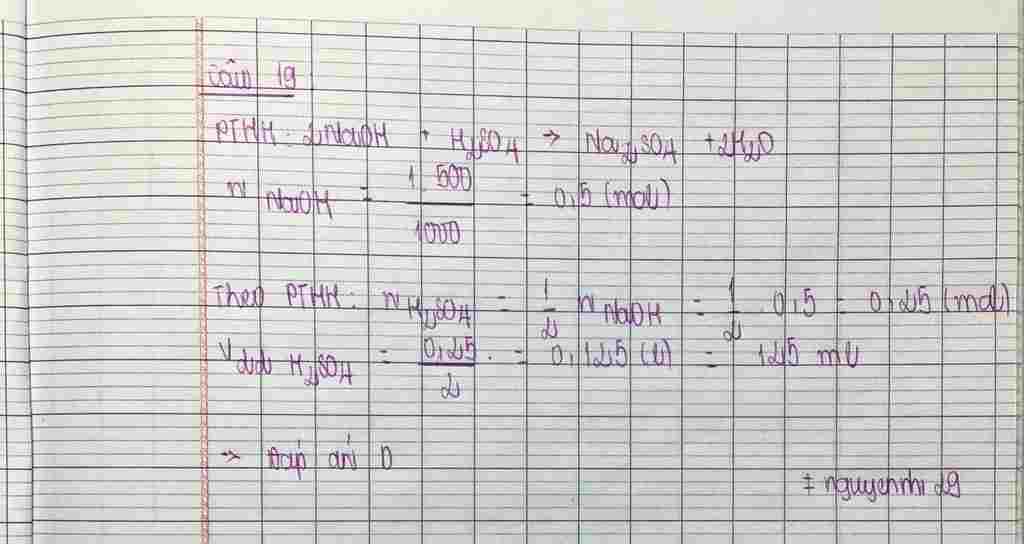 Câu 19
PTHH: 2NaOH + H₂SO₄ → Na₂SO₄ + 2H₂O
n NaOH = 1. 500 / 1000 = 0,5 (mol)
Theo PTHH: n H₂SO₄ = 1/2 n NaOH = 1/2 . 0,5 = 0,25 (mol)
V dd H₂SO₄ = 0,25 / 2 = 0,125 (l) = 125 ml
→ Đáp án D
# nguyennhi 29